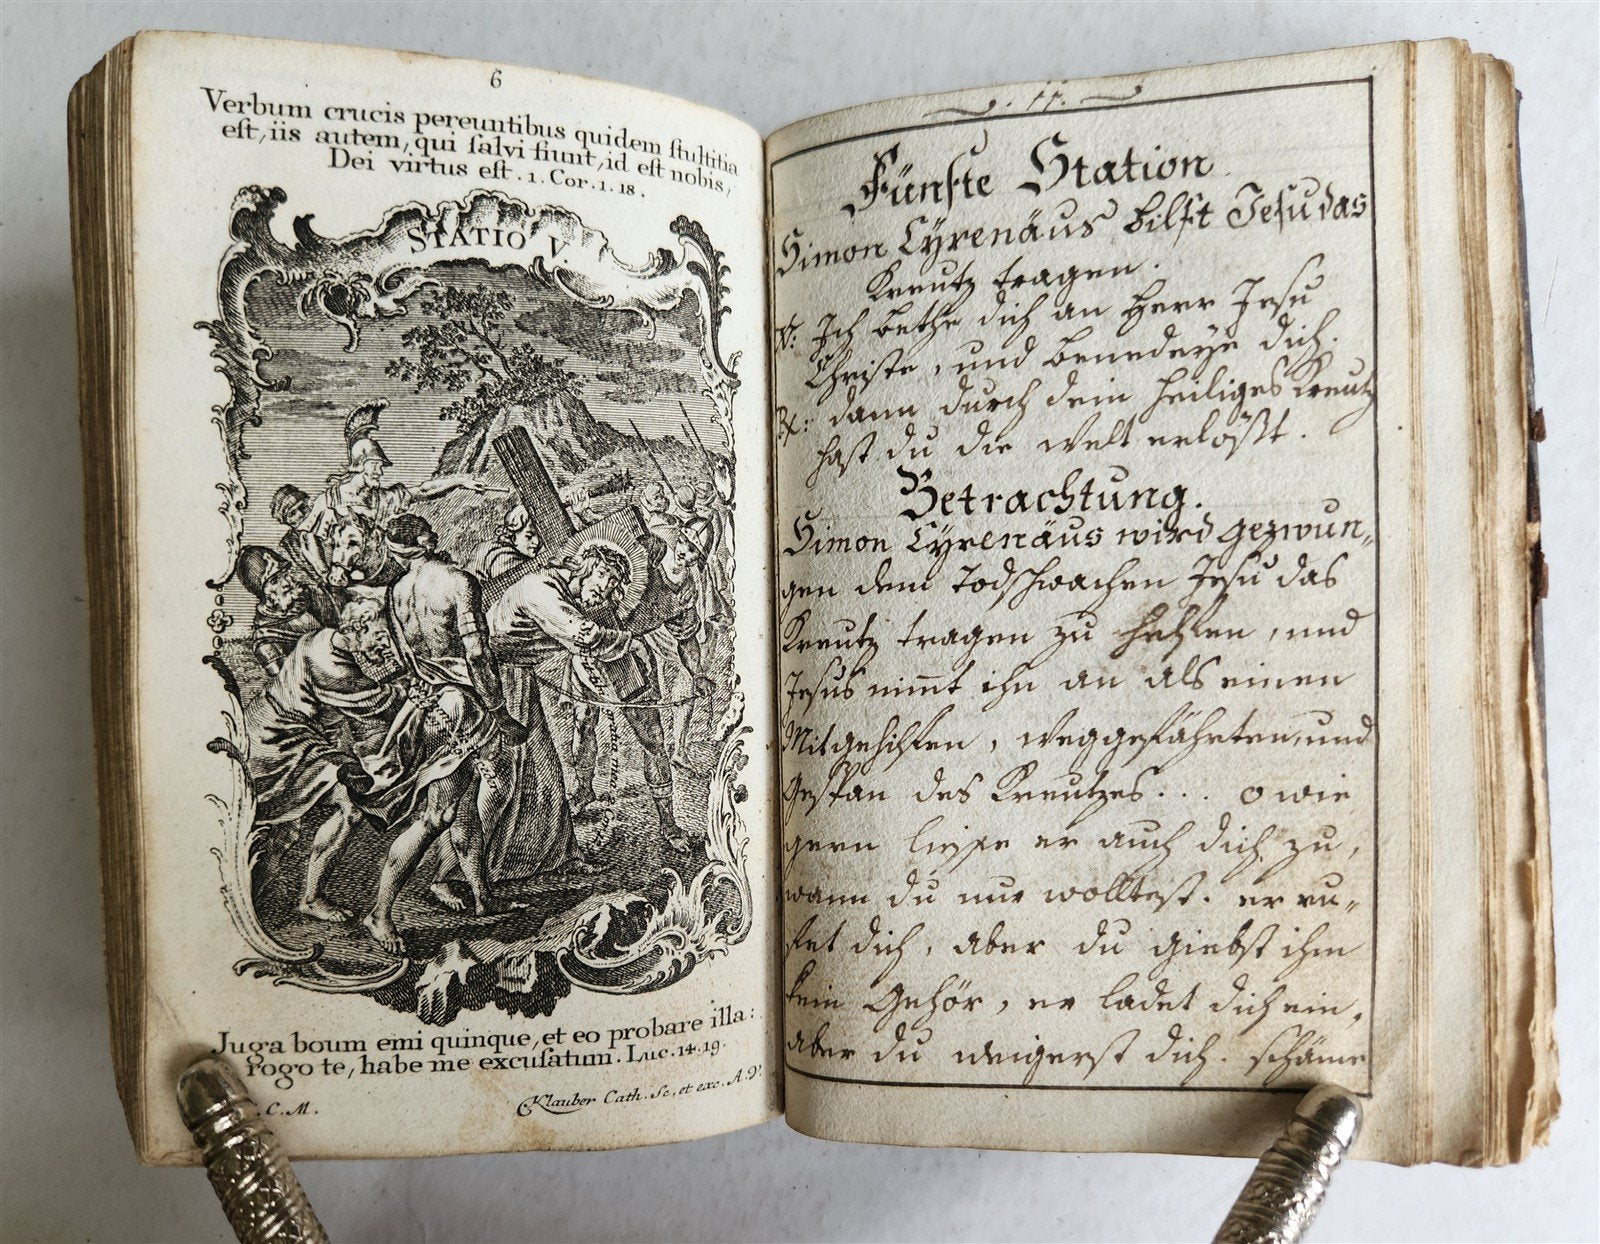 6
Verbum crucis pereuntibus quidem ſtultitia
eſt, iis autem, qui ſalvi fiunt, id eſt nobis,
Dei virtus eſt. 1. Cor. 1. 18.
STATIO V.
Juga boum emi quinque, et eo probare illa:
rogo te, habe me excuſatum. Luc. 14. 19.
C. M.
Klauber Cath. Sc. et exc. A. V.
. 11 .
Fünfte Station
Simon Cyrenäus hilft Jesu das
Kreutz tragen.
℣: Ich bethe dich an Herr Jesu
Christe, und benedeye dich.
℟: dann durch dein heiliges Kreutz
hast du die Welt erlößt.
Betrachtung.
Simon Cyrenäus wird gezwun„
gen dem Todschwachen Jesu das
Kreutz tragen zu helfen, und
Jesus nim̄t ihn an als einen
Mitgehilfen, Weggefährten, und
Gespan des Kreutzes... o wie
gern liesse er auch dich zu,
wann du nur wolltest. er ru„
fet dich, aber du giebst ihm
kein Gehör, er ladet dich ein,
aber du weigerst dich. schäme